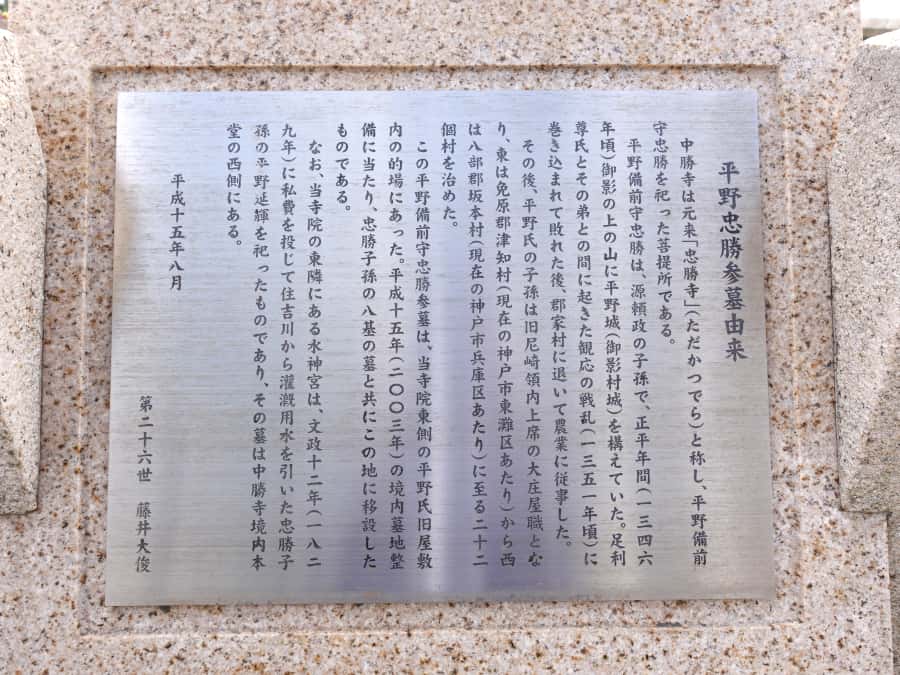 平野忠勝参墓由来
中勝寺は元来「忠勝寺」(ただかつでら)と称し、平野備前
守忠勝を祀った菩提所である。
平野備前守忠勝は、源頼政の子孫で、正平年間(一三四六
年頃)御影の上の山に平野城(御影村城)を構えていた。足利
尊氏とその弟との間に起きた観応の戦乱(一三五一年頃)に
巻き込まれて敗れた後、郡家村に退いて農業に従事した。
その後、平野氏の子孫は旧尼崎領内上席の大庄屋職とな
り、東は免原郡津知村(現在の神戸市東灘区あたり)から西
は八部郡坂本村(現在の神戸市兵庫区あたり)に至る二十二
個村を治めた。
この平野備前守忠勝参墓は、当寺院東側の平野氏旧屋敷
内の的場にあった。平成十五年(二〇〇三年)の境内墓地整
備に当たり、忠勝子孫の八基の墓と共にこの地に移設した
ものである。
なお、当寺院の東隣にある水神宮は、文政十二年(一八二
九年)に私費を投じて住吉川から灌漑用水を引いた忠勝子
孫の平野延輝を祀ったものであり、その墓は中勝寺境内本
堂の西側にある。
平成十五年八月
第二十六世 藤井大俊